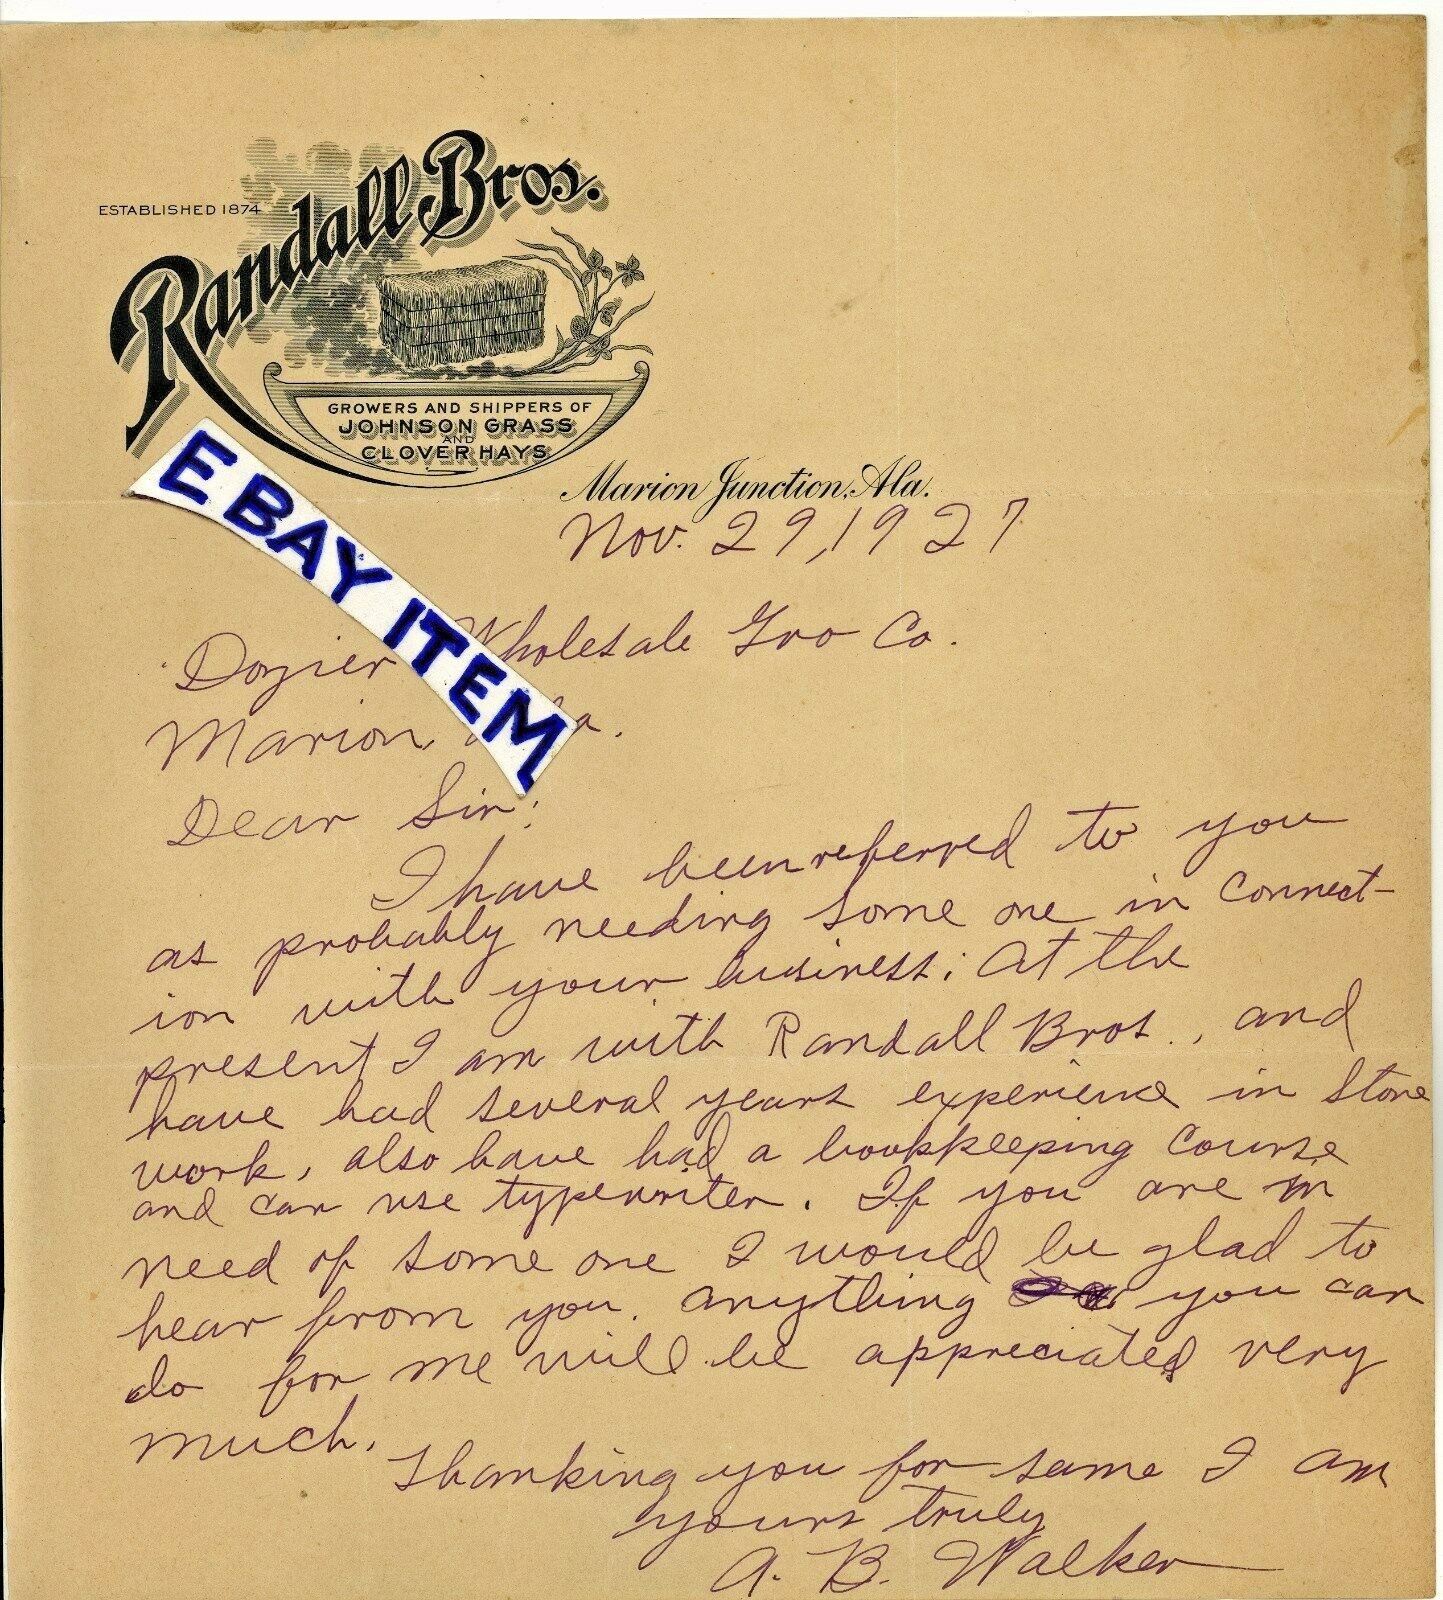 ESTABLISHED 1874
Randall Bros.
GROWERS AND SHIPPERS OF
JOHNSON GRASS
AND
CLOVER HAYS
Marion Junction, Ala.
Nov. 29, 1927
EBAY ITEM
Dozier Wholesale Gro Co.
Marion,
Dear Sir:
I have been referred to you
as probably needing some one in connect-
ion with your business; At the
present I am with Randall Bros., and
have had several years experience in store
work, also have had a bookkeeping course
and can use typewriter. If you are in
need of some one I would be glad to
hear from you. anything you can
do for me will be appreciated very
much.
Thanking you for same I am
yours truly
A. B. Walker